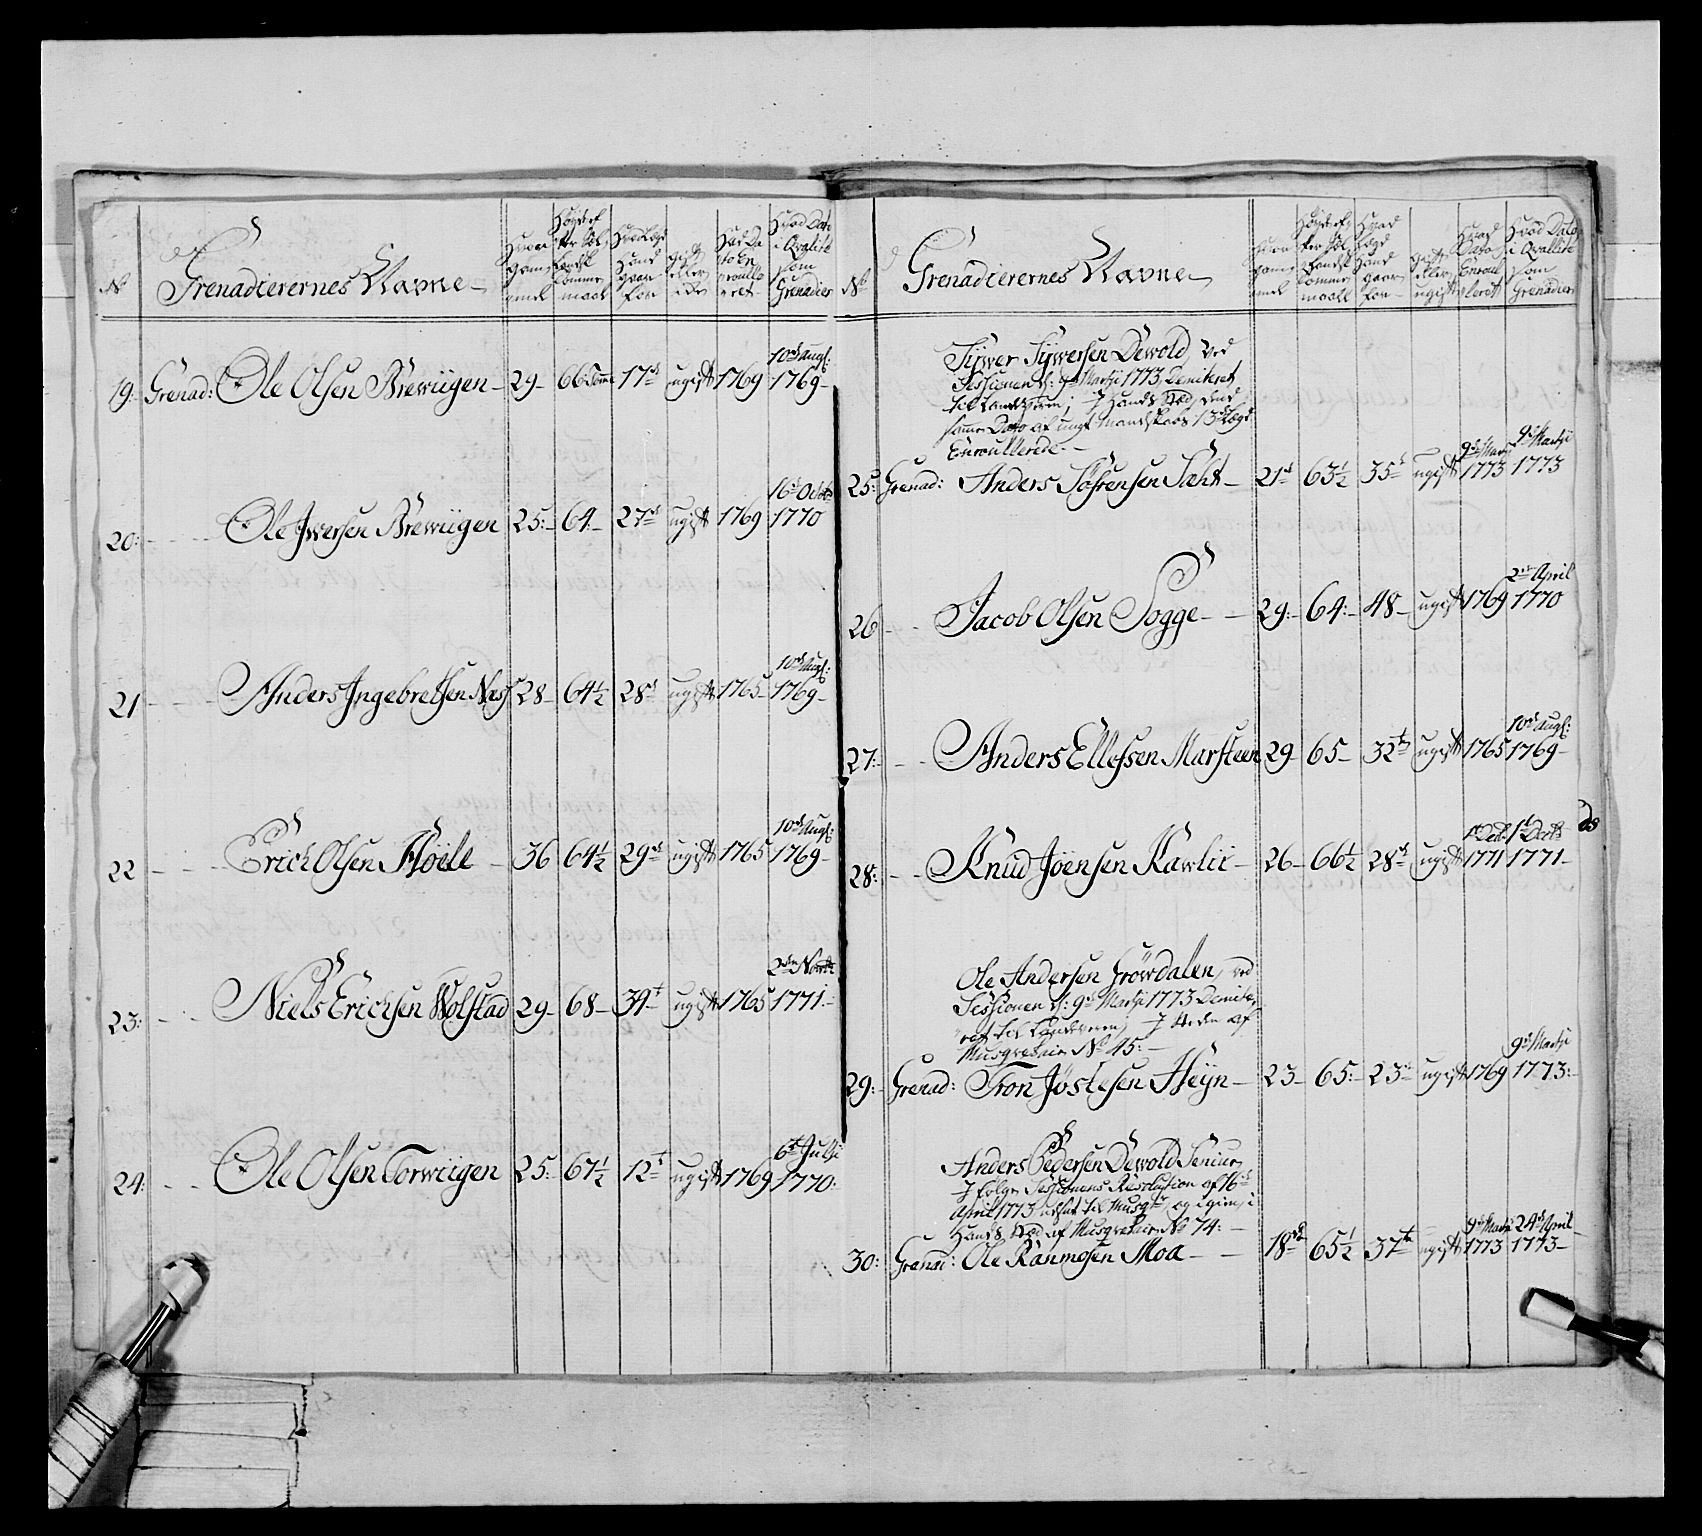 No
Grenadeerernes Navne
Hvor gam̄el
Høyde efter Sol: Landsk tommemaal
Hvad Lægd Hand gaar for
gift eller ei
Hvad Dato Enroulleret
Hvad Dato i Qvalite som Grenadier
19: Grenad: Ole Olsen Brewiigen 29 66 Tom̄e 17de ugift 1769 10de Augs: 1769
20: Ole Iwersen Brewiigen 25 64 27de ugift 1769 16de Octobr 1770
21 Anders Ingebretsen Næss 28 64½ 28de ugift 1765 10de Augs: 1769
22 Erich Olsen Fløele 36 64½ 29de ugift 1765 10de Augs: 1769
23: Niels Erichsen Wolstad 29 68 34te ugift 1765 2den Novbr 1771
24: Ole Olsen Torwiigen 25: 67½ 12te ugift 1769 6te Julji 1770:
No
Grenadeerernes Navne
Hvor gam̄el
Høyde efter Sol: Landsk tommemaall
Hvad Lægd Hand gaar for
gift eller ugift
Hvad Dato Enroulleret
Hvad Dato i Qvallite som Grenadier
Sywer Sywersen Dewold, ved
Sessionen d: 9de Martji 1773, Demiteret
til Landvern; I Hands Stæd, dend
same Dato af ungt Mandskabs 13de Lægd
Enroullerede
25: Grenad: Anders Sørensen Sæht 21de 63½ 35te ugift 9de Martji 1773 9de Martji 1773
26 Jacob Olsen Sogge 29: 64: 48 ugift 1769 2den April 1770
27: Anders Ellefsen Marsteen 29 65 32te ugift 1765 10de Augs: 1769
28: Knud Joensen Kawlii 26 66½ 28de ugift 1te Decbr 1771 1te Decbr 1771
Ole Andersen Grøwdalen, ved
Sessionen d: 9de Martji 1773 Demiteret
til Landværn, I Steden af
Musqvetair No 45:
29: Grenad: Tron Jøstesen Heyn 23 65: 23de ugift 1769 9de Martji 1773:
Anders Pedersen Dewold Seniur,
I følge Sessionens Resolution af 16de
April 1773 udsat til Musqtr, og igien i
Hands Stæd af Musqvetair No 74:
30: Grenad: Ole Rasmusen Moa 18de 65½ 37te ugift 9de Martji 1773 24de April 1773